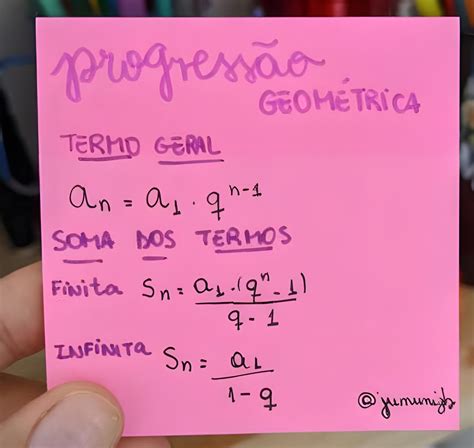 progressão
GEOMÉTRICA
TERMO GERAL
an = a1 . q^n-1
SOMA DOS TERMOS
FINITA Sn = a1 . (q^n - 1) / q - 1
INFINITA Sn = a1 / 1 - q